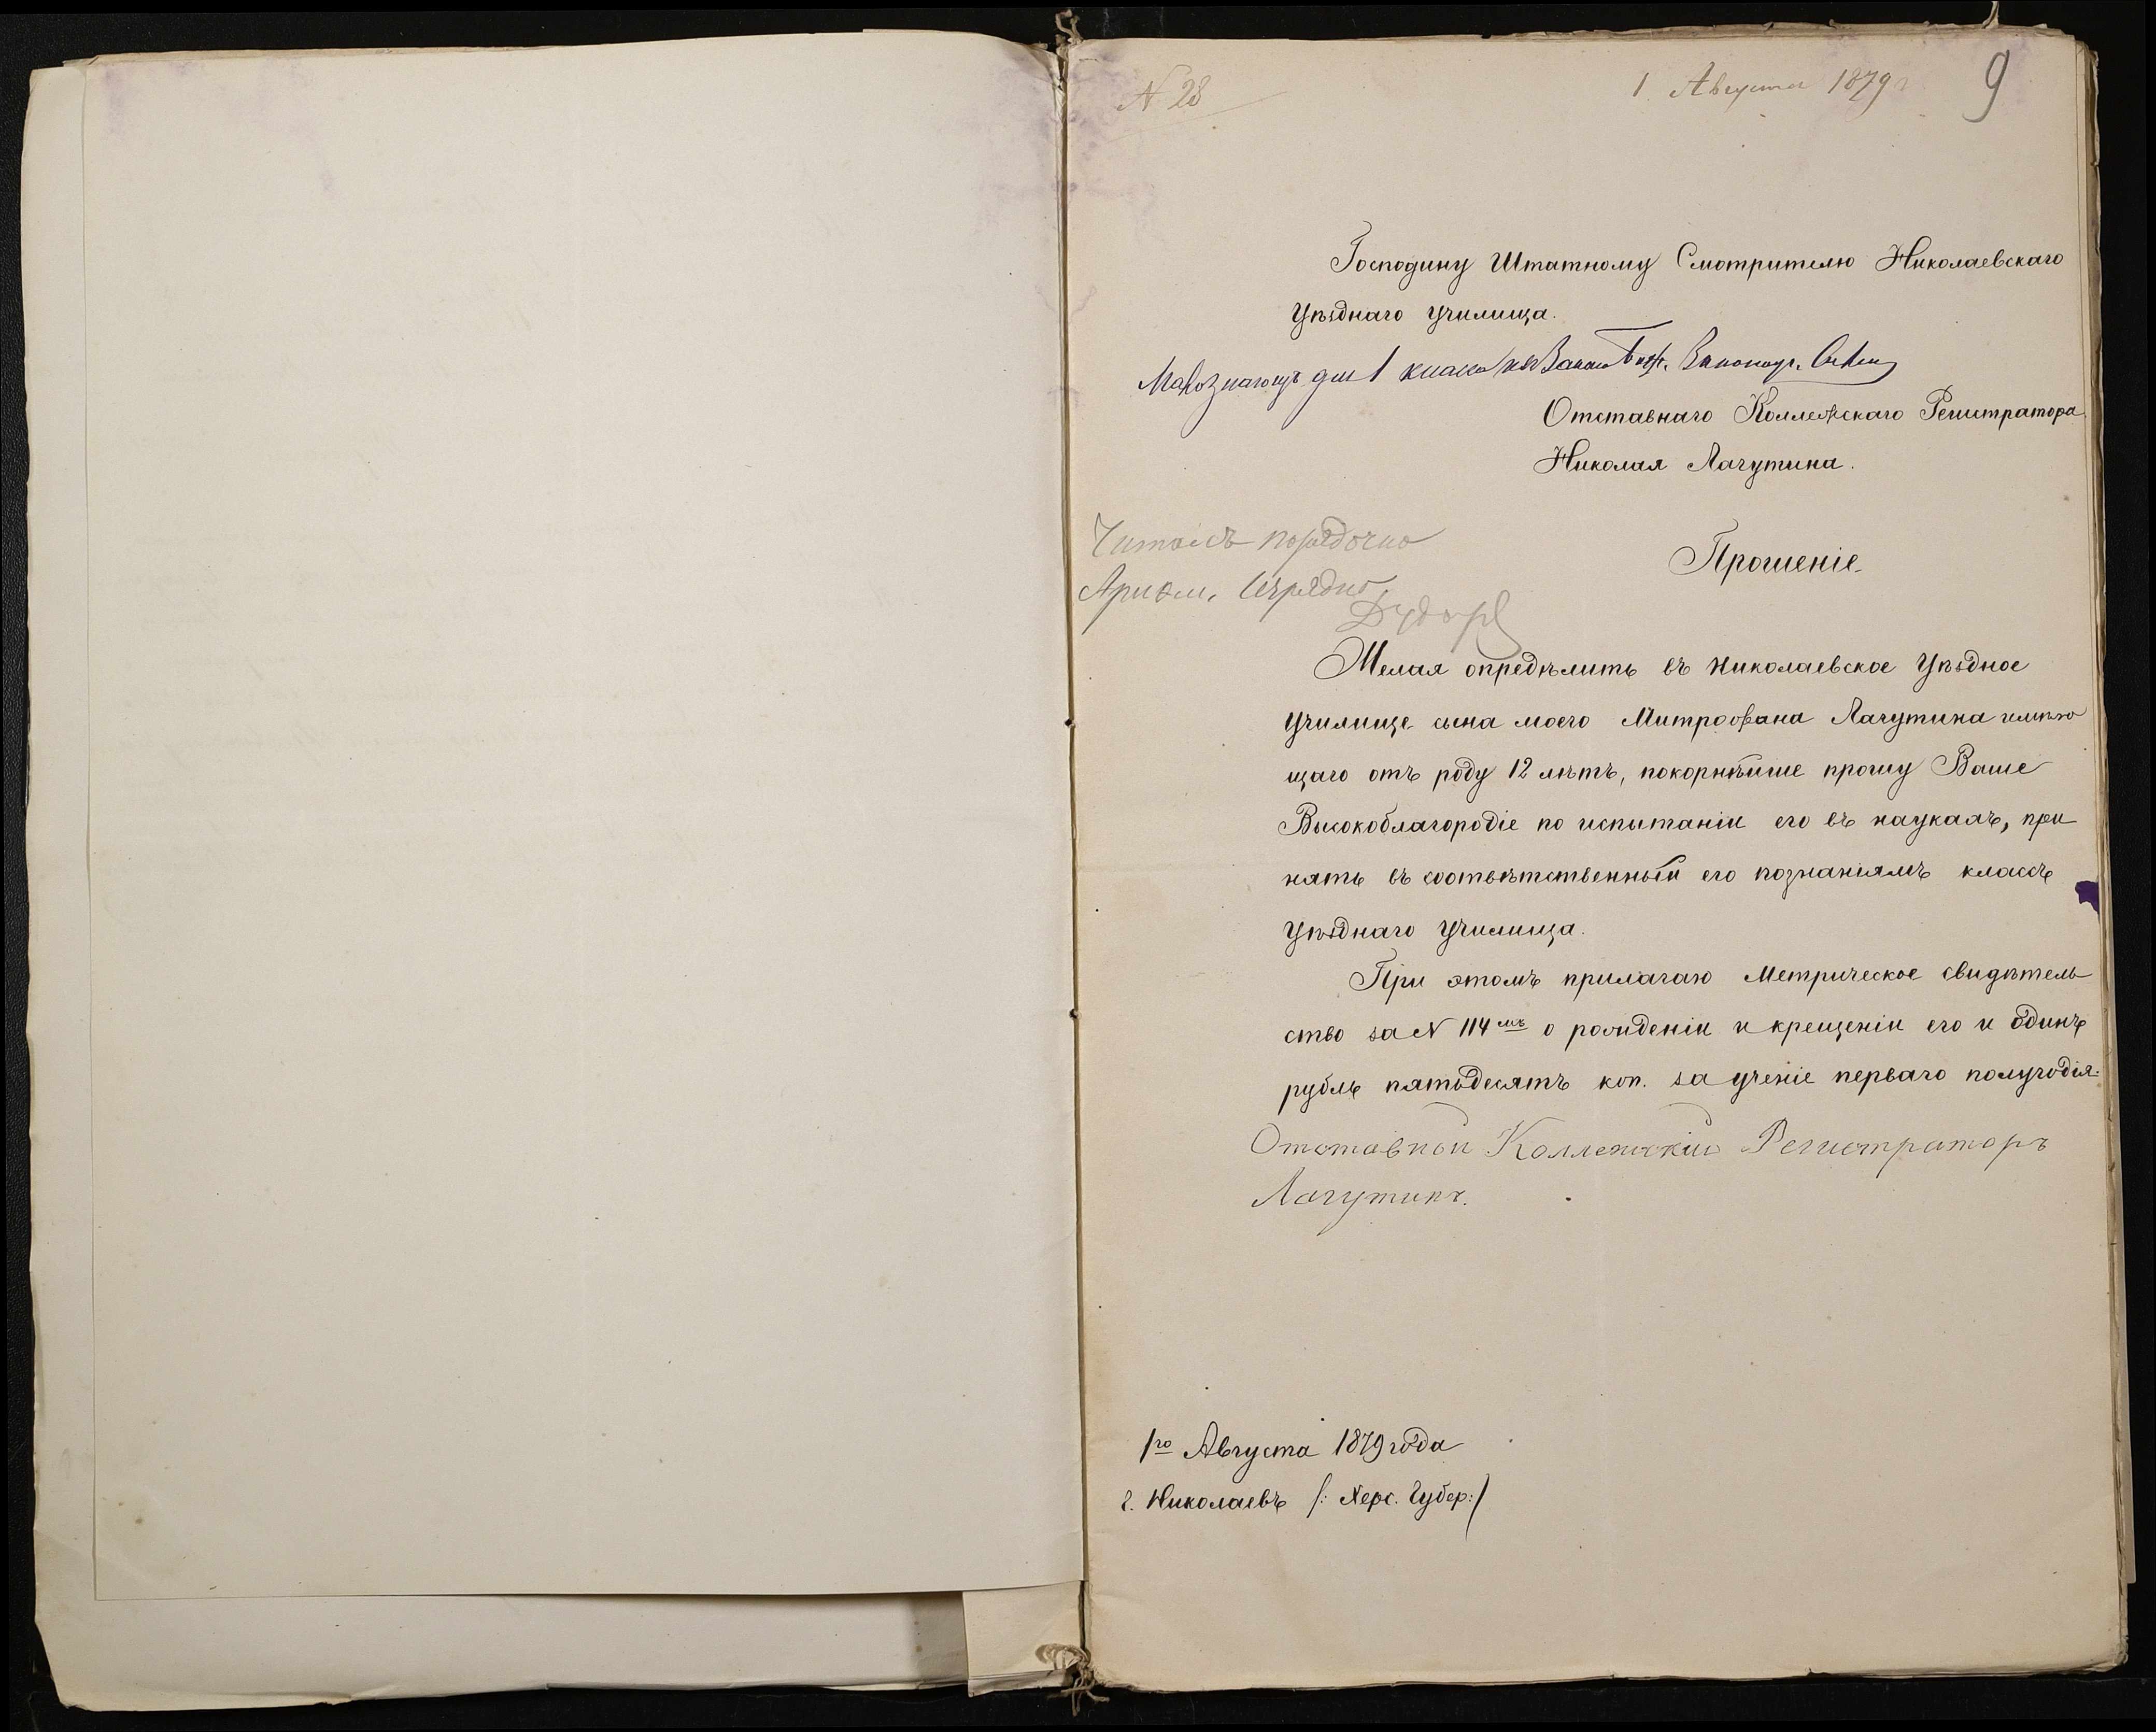 N 28
1 Августа 1879 г
9
Господину Штатному Смотрителю Николаевскаго
Уѣзднаго Училища.
для 1 класса
Отставнаго Коллежскаго Регистратора
Николая Лагутина.
Читаетъ порядочно
Ариѳм. Изрядно
Прошеніе
Желая опредѣлить въ Николаевское Уѣздное
Училище сына моего Митрофана Лагутина имѣю
щаго отъ роду 12 лѣтъ, покорнѣйше прошу Ваше
Высокоблагородіе по испытаніи его въ наукахъ, при
нять въ соотвѣтственный его познаніямъ классъ
Уѣзднаго Училища.
При этомъ прилагаю Метрическое свидѣтель
ство за N 114 мъ о рожденіи и крещеніи его и одинъ
рубль пятьдесятъ коп. за ученіе перваго полугодія.
Отставной Коллежскій Регистраторъ
Лагутинъ.
1го Августа 1879 года
г. Николаевъ /: Херс. Губер:/